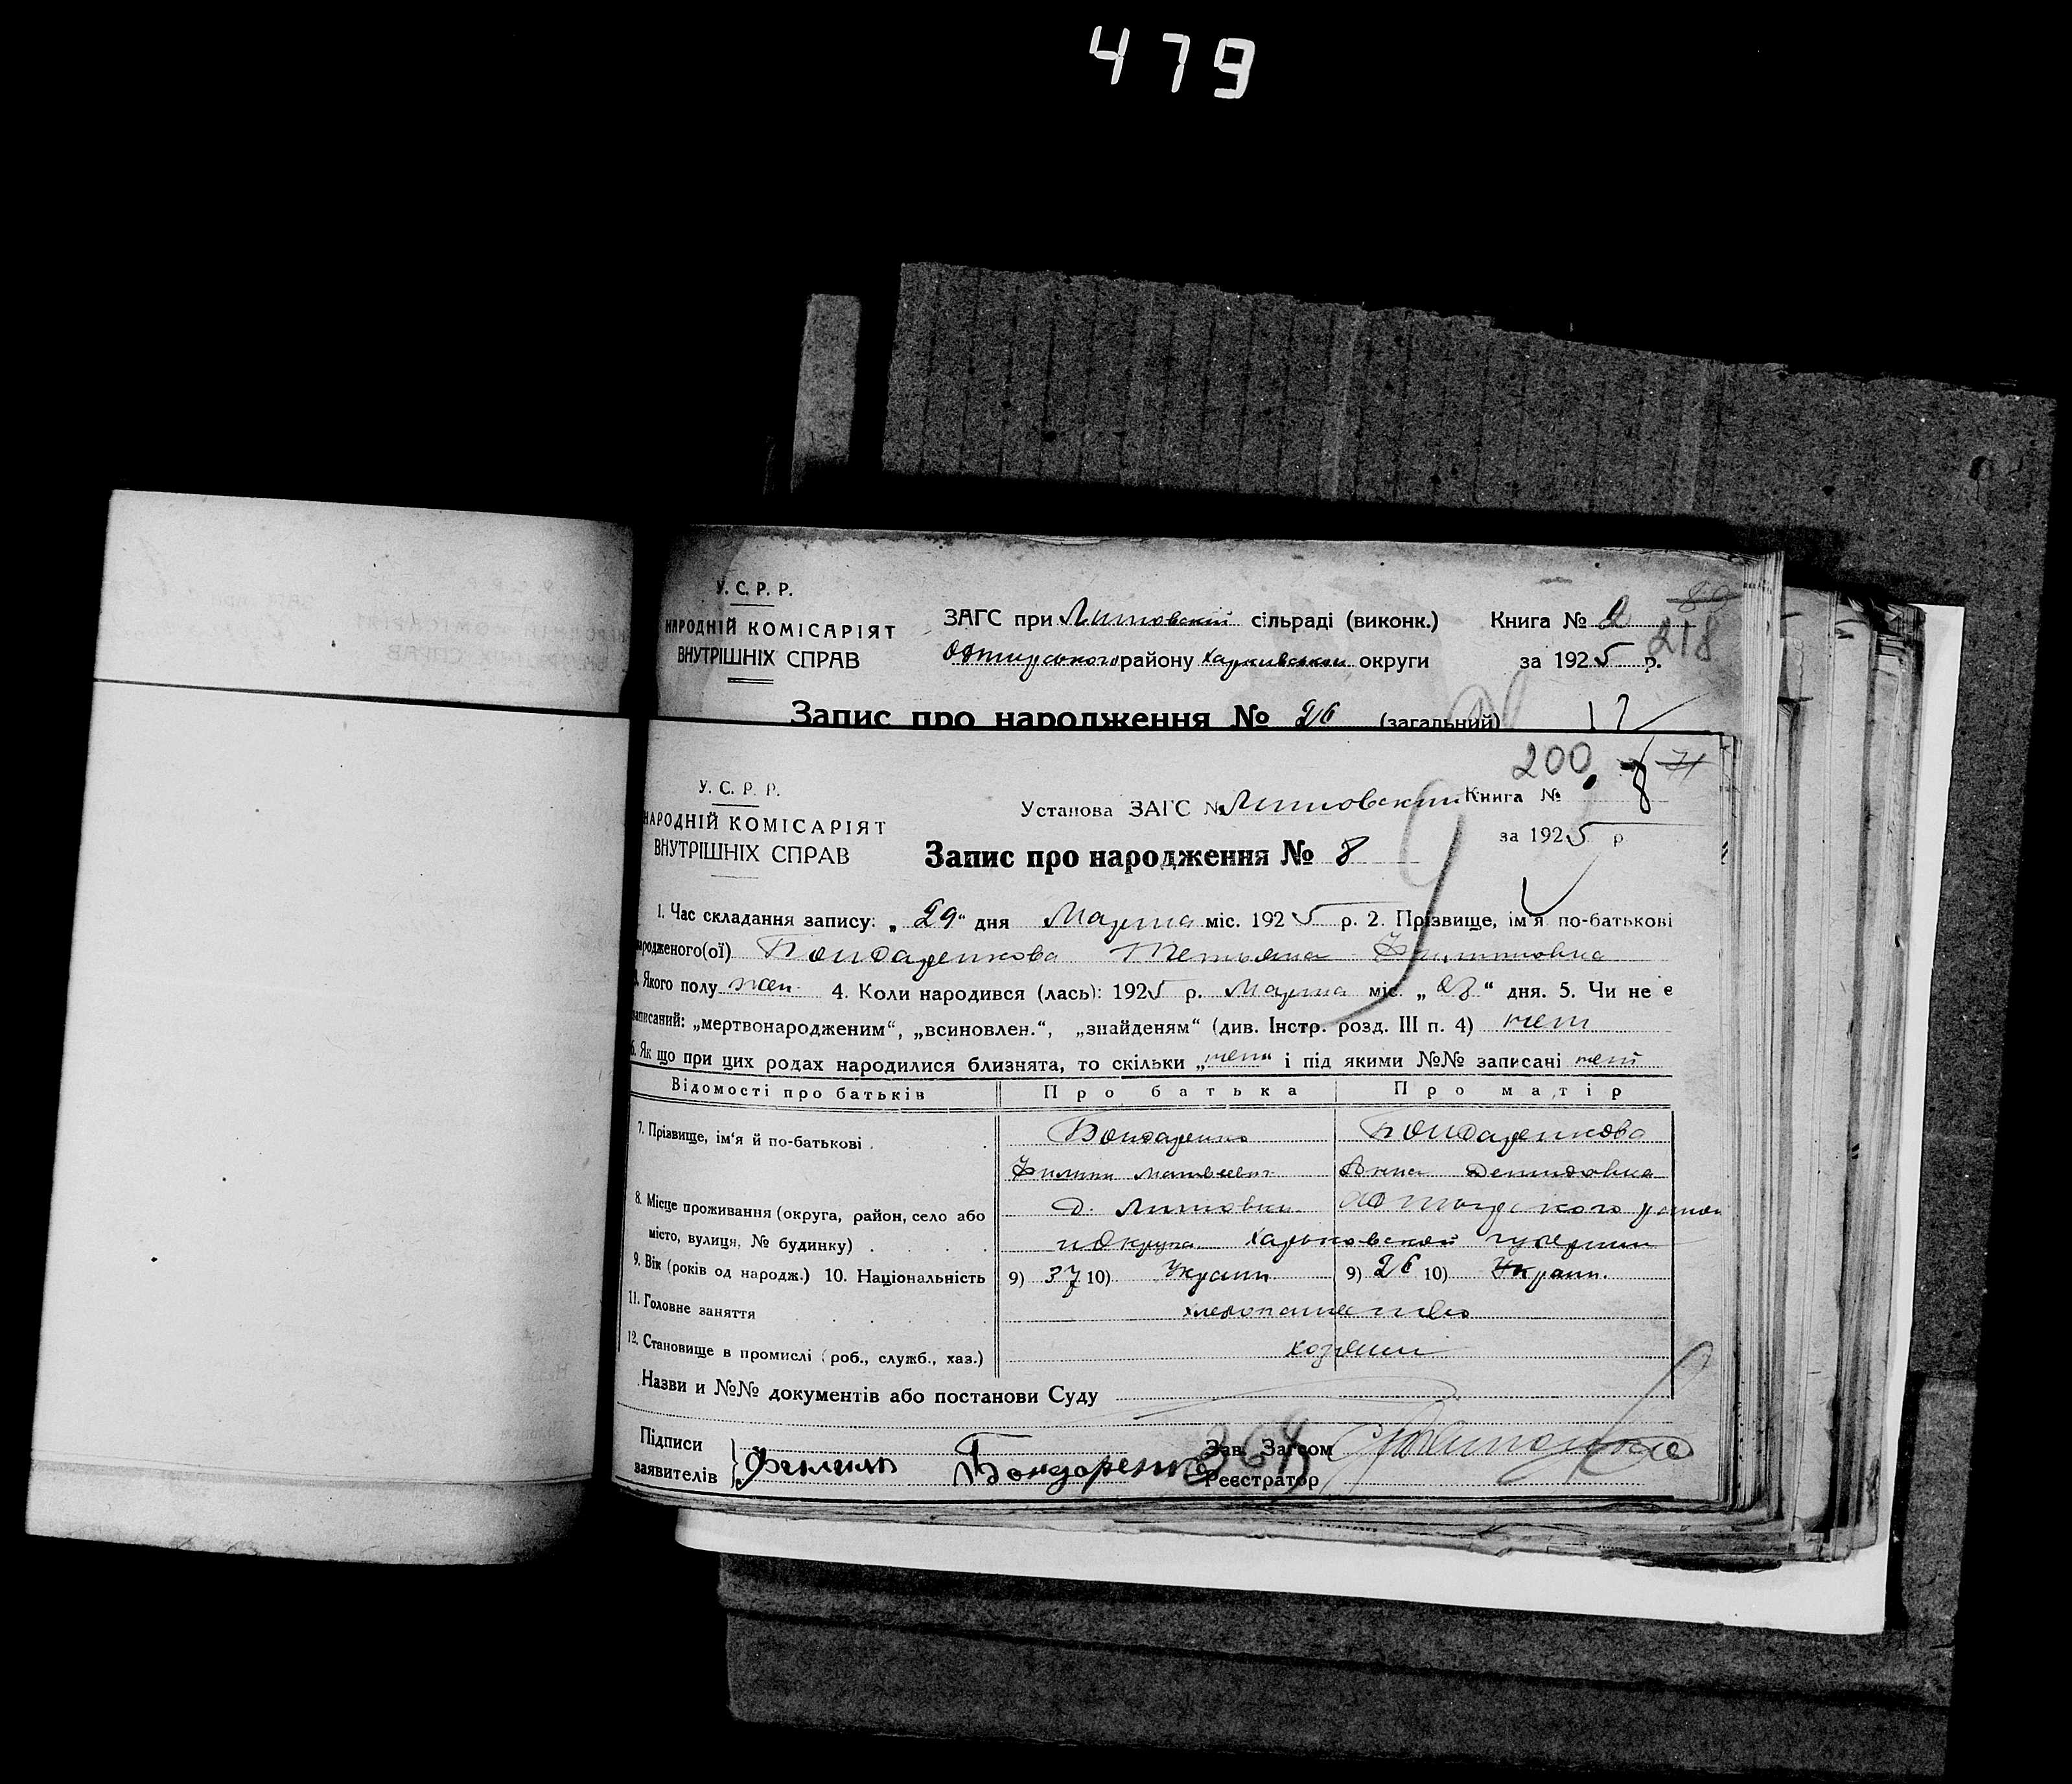 479
У. С. Р. Р.
НАРОДНІЙ КОМІСАРІЯТ
ВНУТРІШНІХ СПРАВ
ЗАГС при Литовській сільраді (виконк.)
району Харківської округи
Книга № 2
80
218
за 1925 р.
Запис про народження № 26 (загальний)
У. С. Р. Р.
НАРОДНІЙ КОМІСАРІЯТ
ВНУТРІШНІХ СПРАВ
200
71
Установа ЗАГС № Литовский
Книга № 8
за 1925 р
Запис про народження № 8
1. Час складання запису: „29“ дня Марта міс. 1925 р. 2. Прізвище, ім'я по-батькові
народженого(ої) Бондаренкова Тетьяна Филиповна
3. Якого полу жен. 4. Коли народився (лась): 1925 р. Марта міс. „28“ дня. 5. Чи не є
записаний: „мертвонародженим“, „всиновлен.“, „знайденям“ (див. Інстр. розд. III п. 4) нет
6. Як що при цих родах народилися близнята, то скільки „нет“ і під якими №№ записані нет
Відомості про батьків Про батька Про матір
7. Прізвище, ім'я й по-батькові . . Бондаренко Бондаренкова
Филипп Матвеевич Анна Демидовна
8. Місце проживання (округа, район, село або д. Литовки
місто, вулиця, № будинку) . . . . и округа Харьковской губернии
9. Вік (років од народж.) 10. Національність 9) 37 10) Украин. 9) 26 10) Украин.
11. Головне заняття . . . . хлебопашество
12. Становище в промислі (роб., служб., хаз.) хозяин
Назви и №№ документів або постанови Суду
Підписи
заявителів
Филипп Бондаренко
364
Зав. Загсом
Реєстратор